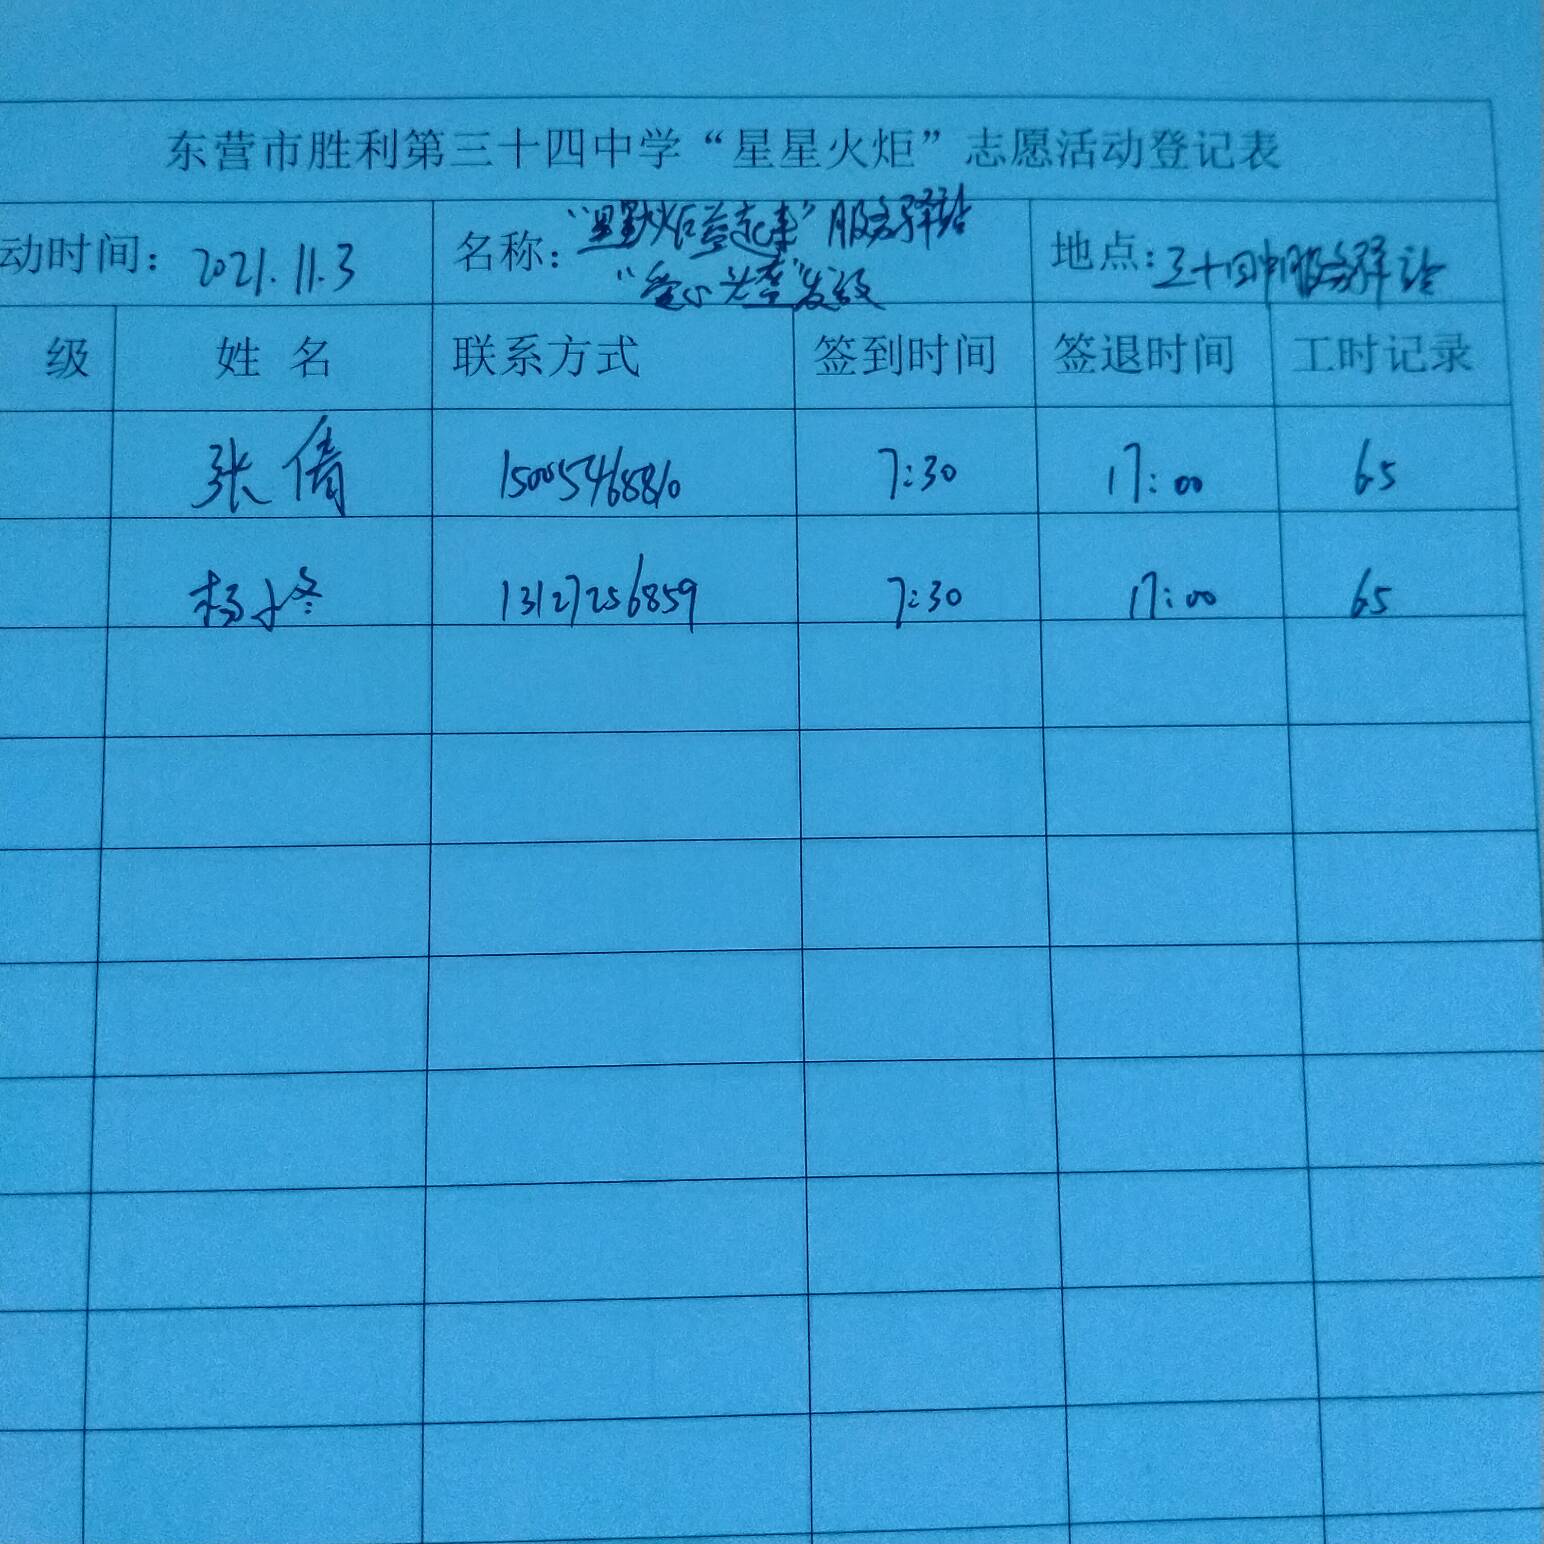 东营市胜利第三十四中学“星星火炬”志愿活动登记表
动时间：2021.11.3 名称：“星星火炬益起来”服务驿站 地点：三十四中服务驿站
“爱心 发放
级 姓名 联系方式 签到时间 签退时间 工时记录
张倩 15005468810 7:30 17:00 65
杨 13127256859 7:30 17:00 65